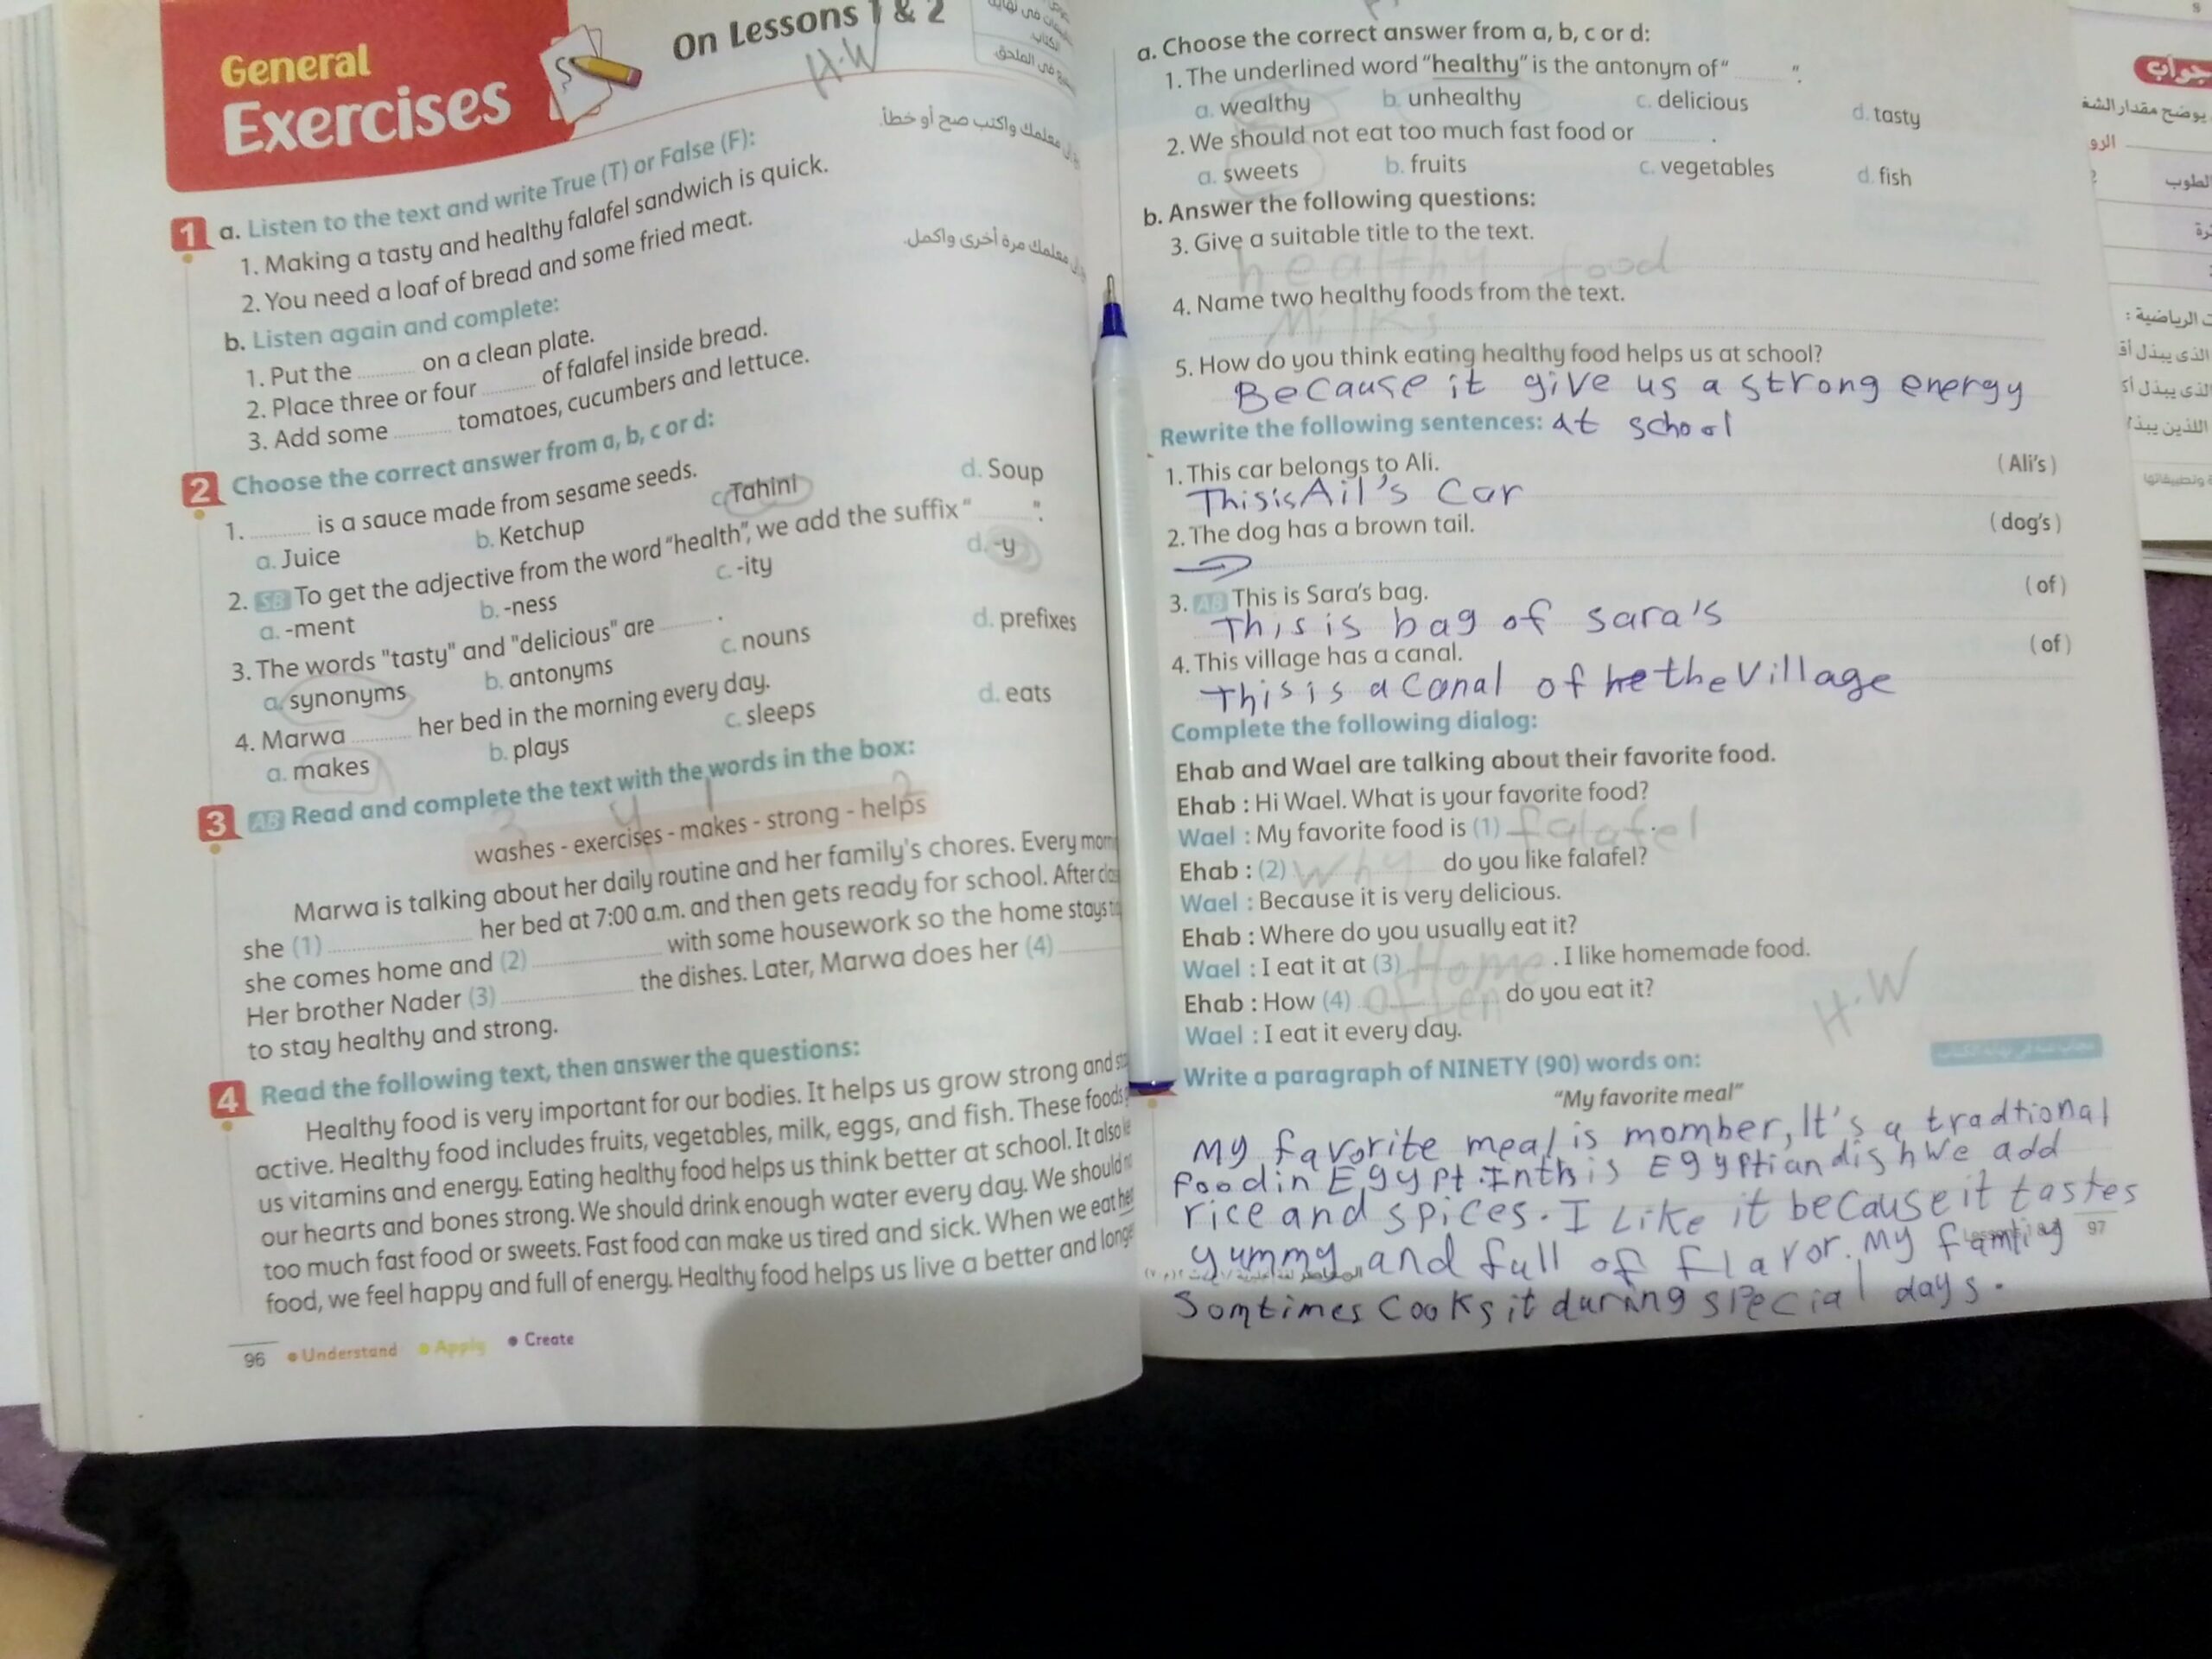 General
Exercises
On Lessons 1 & 2
H.W
معلمك واكتب صح أو خطأ.
1 a. Listen to the text and write True (T) or False (F):
1. Making a tasty and healthy falafel sandwich is quick.
2. You need a loaf of bread and some fried meat.
معلمك مرة أخرى واكمل.
b. Listen again and complete:
1. Put the on a clean plate.
2. Place three or four of falafel inside bread.
3. Add some tomatoes, cucumbers and lettuce.
2 Choose the correct answer from a, b, c or d:
1. is a sauce made from sesame seeds.
a. Juice b. Ketchup c. Tahini d. Soup
2. SB To get the adjective from the word "health", we add the suffix " ".
a. -ment b. -ness c. -ity d. -y
3. The words "tasty" and "delicious" are .
a. synonyms b. antonyms c. nouns d. prefixes
4. Marwa her bed in the morning every day.
a. makes b. plays c. sleeps d. eats
3 AB Read and complete the text with the words in the box:
3 4 1 2
washes - exercises - makes - strong - helps
Marwa is talking about her daily routine and her family's chores. Every
she (1) her bed at 7:00 a.m. and then gets ready for school. After
she comes home and (2) with some housework so the home stays
Her brother Nader (3) the dishes. Later, Marwa does her (4)
to stay healthy and strong.
4 Read the following text, then answer the questions:
Healthy food is very important for our bodies. It helps us grow strong and
active. Healthy food includes fruits, vegetables, milk, eggs, and fish. These foods
us vitamins and energy. Eating healthy food helps us think better at school. It also
our hearts and bones strong. We should drink enough water every day. We should
too much fast food or sweets. Fast food can make us tired and sick. When we eat
food, we feel happy and full of energy. Healthy food helps us live a better and
96 Understand Apply Create
a. Choose the correct answer from a, b, c or d:
1. The underlined word "healthy" is the antonym of " ".
a. wealthy b. unhealthy c. delicious d. tasty
2. We should not eat too much fast food or .
a. sweets b. fruits c. vegetables d. fish
b. Answer the following questions:
3. Give a suitable title to the text.
healthy food
4. Name two healthy foods from the text.
Milks
5. How do you think eating healthy food helps us at school?
Because it give us a strong energy
at school
Rewrite the following sentences:
1. This car belongs to Ali. (Ali's)
This is Ail's Car
2. The dog has a brown tail. (dog's)
3. AB This is Sara's bag. (of)
This is bag of sara's
4. This village has a canal. (of)
This is a canal of the village
Complete the following dialog:
Ehab and Wael are talking about their favorite food.
Ehab : Hi Wael. What is your favorite food?
Wael : My favorite food is (1) falafel .
Ehab : (2) Why do you like falafel?
Wael : Because it is very delicious.
Ehab : Where do you usually eat it?
Wael : I eat it at (3) Home . I like homemade food.
Ehab : How (4) often do you eat it?
Wael : I eat it every day.
H.W
Write a paragraph of NINETY (90) words on:
"My favorite meal"
My favorite meal is momber, It's a tradtional
food in Egypt. In this Egyptian dish We add
rice and spices. I Like it because it tastes
97
yummy and full of flavor. My
Somtimes Cooks it during special days.
جواب
يوضح مقدار
الرو
الرياضية :
الذى يبذل
الذى يبذل